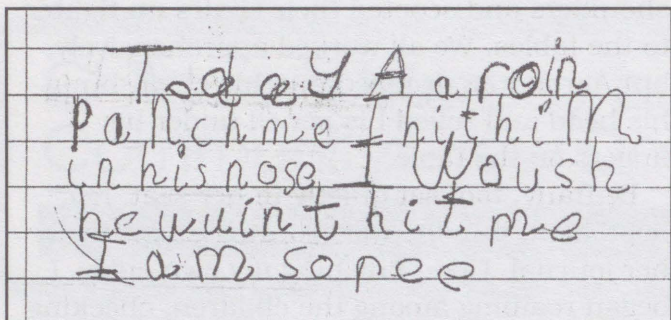 Today Aaroin
Panchme I hit hiM
in his nose I Woush
he wuint hit me
I am soree